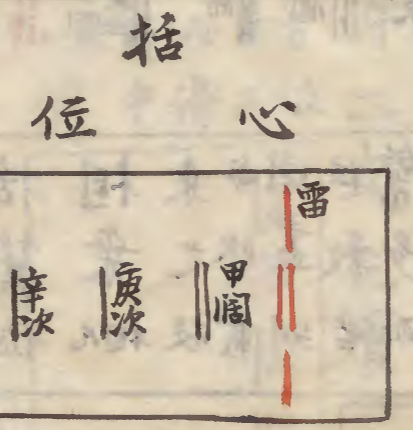 括
心位
雷
甲阔
庚次
辛次